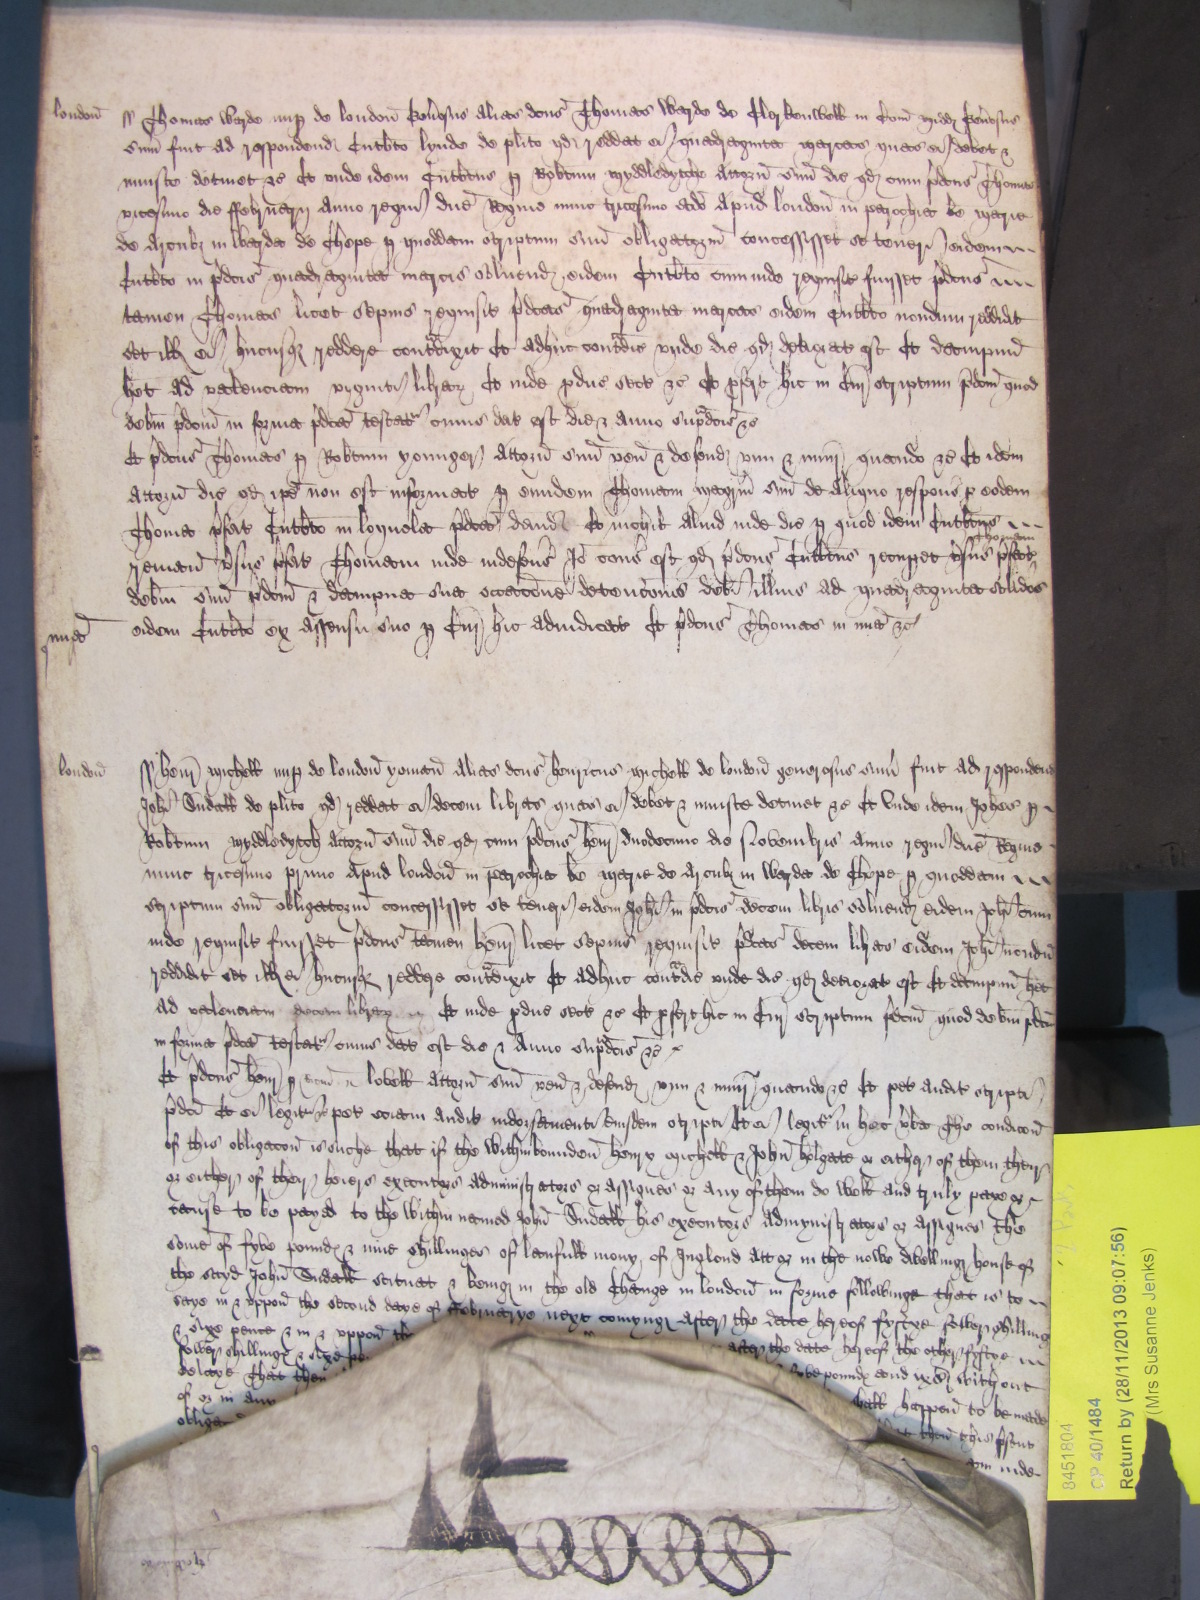 london̄ ss Thomas Warde nup de london̄ Gen̄osus alias dc̄us Thomas Warde de Clerkenwell in Com̄ Midd Gen̄osus
sum̄ fuit ad respondend Cutb̄to lynde de plito qd reddat ei quadraginta marcas quas ei debet &
iniuste detinet &c Et unde idem Cutb̄tus p Rob̄tum Myddledytche Attorn̄ suū dic̄ qd cum p̄dc̄us Thomas
vicesimo die ffebruarij Anno regni dn̄e Regine nunc tricesimo Apud london̄ in parochia b̄e Marie
de Arcub in Warda de Chepe p quoddam scriptum suū obligator̄m concessisset se teneri eidem
Cutb̄to in p̄dc̄is quadraginta marcis solvend eidem Cutb̄to cum inde requisit fuisset p̄dc̄us
tamen Thomas licet sepius requisit p̄dc̄as quadraginta marcas eidem Cutb̄to nondum reddidit
set ill ei hucusq reddere contradixit Et adhuc contradic̄ unde dic̄ qd deteriorat est Et dampnū
h̄et ad valenciam viginti librar Et inde p̄duc̄ sect &c Et p̄fert hic in Cur̄ scriptum p̄dc̄m quod
deb̄m p̄dc̄m in forma p̄dc̄a testat̄ cuius dat est die & Anno sup̄dc̄is &c
Et p̄dc̄us Thomas p Rob̄tum younger Attorn̄ suū ven̄ & defend vim & iniur̄ quando &c Et idem
Attorn̄ dic̄ qd ip̄e non est informat p eundem Thomam maḡrm̄ suū de aliquo respons̄ p eodem
Thoma p̄fat Cutb̄to in loquela p̄dc̄a dand Et nichil aliud inde dic̄ p quod idem Cutb̄tus
remanet v̄sus p̄fat Thomam inde indefens̄ Io cons̄ est qd p̄dc̄us Cutb̄tus recuperet v̄sus p̄fat Thomam
deb̄m suū p̄dc̄m & dampna sua occac̄one detenc̄onis deb̄i illius ad quadraginta solidos
mīa eidem Cutb̄to ex assensu suo p Cur̄ hic adiudicat Et p̄dc̄us Thomas in mīa &c
london̄ ss Henr̄ Michell nup de london̄ yoman̄ alias dc̄us Henricus Michell de london̄ generosus sum̄ fuit ad respondend
Joh̄i Sudall de plito qd reddat ei decem libras quas ei debet & iniuste detinet &c Et unde idem Joh̄es p
Rob̄tum Myddledytch Attorn̄ suū dic̄ qd cum p̄dc̄us Henr̄ duodecimo die Novembris Anno regni dn̄e Regine
nunc tricesimo primo Apud london̄ in parochia b̄e Marie de Arcub in Warda de Chepe p quoddam
scriptum suū obligator̄m concessisset se teneri eidem Joh̄i in p̄dc̄is decem libris solvend eidem Joh̄i cum
inde requisit fuisset p̄dc̄us tamen Henr̄ licet sepius requisit p̄dc̄as decem libras eidem Joh̄i nondū
reddidit set ill ei hucusq reddere contradixit Et adhuc contradic̄ unde dic̄ qd deteriorat est Et dampnū h̄et
ad valenciam decem librar Et inde p̄duc̄ sect &c Et p̄fert hic in Cur̄ scriptum p̄dc̄m quod deb̄m p̄dc̄m
in forma p̄dc̄a testat̄ cuius dat est die & Anno sup̄dc̄is &c
Et p̄dc̄us Henr̄ p lovell Attorn̄ suū ven̄ & defend vim & iniur̄ quando &c Et pet audit scripti
p̄dc̄i Et ei legit̄ pet eciam audit indorsamenti eiusdem scripti Et ei legit̄ in hec v̄ba The condic̄on
of this obligac̄on is suche that if the Withinbounden Henry Michell & John Holgate or either of them their
or either of their heires executors administrators or assignes or any of them do well and truly paye or
cause to be payed to the within named John Sudall his executors Admynistrators or assignes The
some of fyve pounds & nine shillinges of laufull mony of Inglond Att or in the nowe dwelling house of
the seyd John Sudall scituat & being in the old Change in london̄ in forme followinge that is to
saye in & uppon the second daye of ffebruarye next comyng after the date hereof fystye fower shilling
& sixe pence & in & uppon the after the date hereof the other fystye
fower shilling & sixe pe fyve pounds and ix s without
delaye That then shall happen to be made
of or in any then this p̄sent
obliga com inde
8451804
CP 40/1484
Return by (28/11/2013 09:07:56)
(Mrs Susanne Jenks)